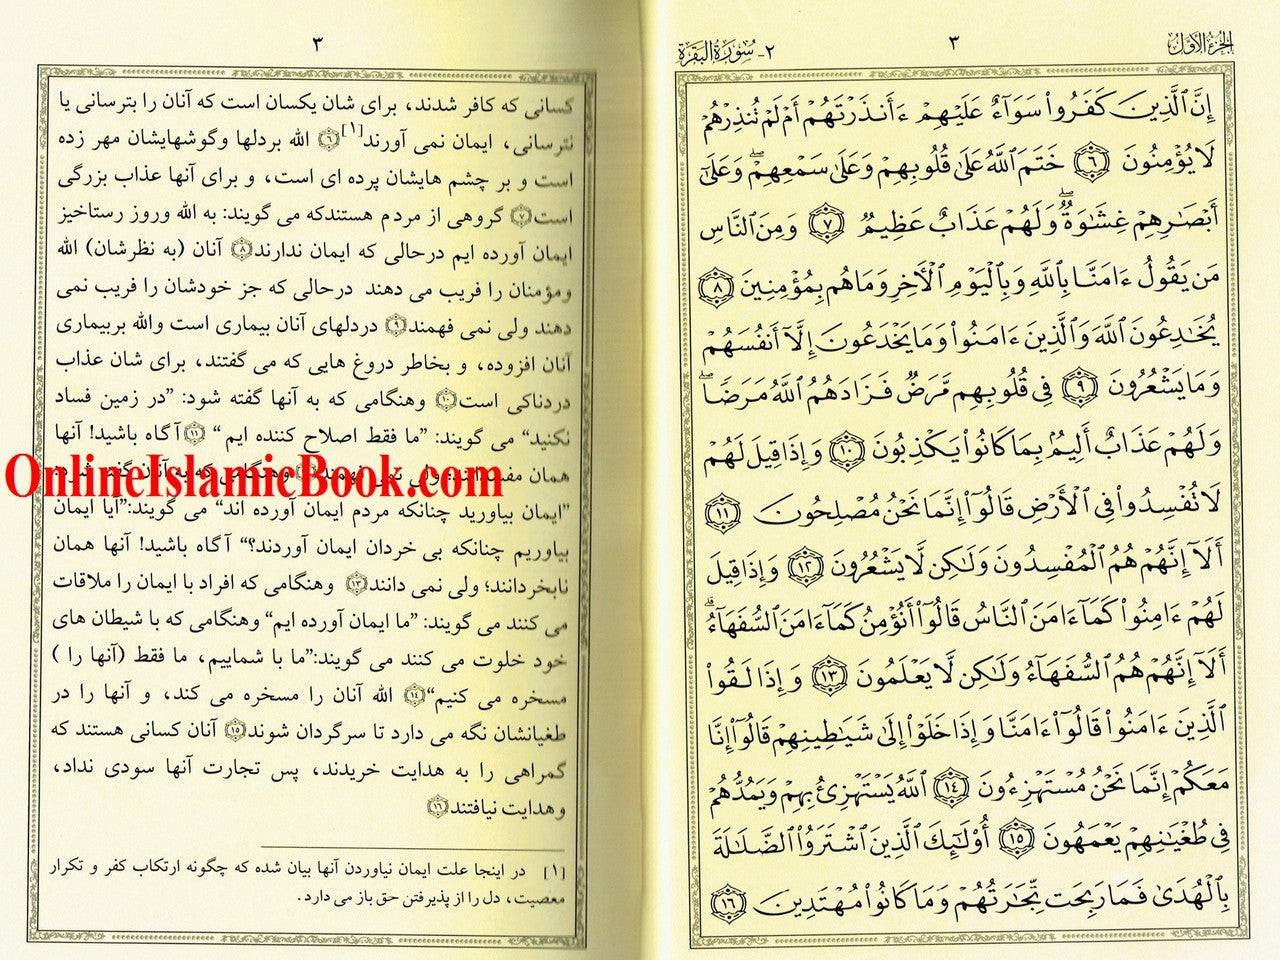 الجزء الأول
٣
٢- سورة البقرة
إِنَّ ٱلَّذِينَ كَفَرُوا۟ سَوَآءٌ عَلَيْهِمْ ءَأَنذَرْتَهُمْ أَمْ لَمْ تُنذِرْهُمْ
لَا يُؤْمِنُونَ ٦ خَتَمَ ٱللَّهُ عَلَىٰ قُلُوبِهِمْ وَعَلَىٰ سَمْعِهِمْ ۖ وَعَلَىٰٓ
أَبْصَـٰرِهِمْ غِشَـٰوَةٌ ۖ وَلَهُمْ عَذَابٌ عَظِيمٌ ٧ وَمِنَ ٱلنَّاسِ
مَن يَقُولُ ءَامَنَّا بِٱللَّهِ وَبِٱلْيَوْمِ ٱلْأَخِرِ وَمَا هُم بِمُؤْمِنِينَ ٨
يُخَـٰدِعُونَ ٱللَّهَ وَٱلَّذِينَ ءَامَنُوا۟ وَمَا يَخْدَعُونَ إِلَّآ أَنفُسَهُمْ
وَمَا يَشْعُرُونَ ٩ فِى قُلُوبِهِم مَّرَضٌ فَزَادَهُمُ ٱللَّهُ مَرَضًا ۖ
وَلَهُمْ عَذَابٌ أَلِيمٌۢ بِمَا كَانُوا۟ يَكْذِبُونَ ١٠ وَإِذَا قِيلَ لَهُمْ
لَا تُفْسِدُوا۟ فِى ٱلْأَرْضِ قَالُوٓا۟ إِنَّمَا نَحْنُ مُصْلِحُونَ ١١
أَلَآ إِنَّهُمْ هُمُ ٱلْمُفْسِدُونَ وَلَـٰكِن لَّا يَشْعُرُونَ ١٢ وَإِذَا قِيلَ
لَهُمْ ءَامِنُوا۟ كَمَآ ءَامَنَ ٱلنَّاسُ قَالُوٓا۟ أَنُؤْمِنُ كَمَآ ءَامَنَ ٱلسُّفَهَآءُ ۗ
أَلَآ إِنَّهُمْ هُمُ ٱلسُّفَهَآءُ وَلَـٰكِن لَّا يَعْلَمُونَ ١٣ وَإِذَا لَقُوا۟
ٱلَّذِينَ ءَامَنُوا۟ قَالُوٓا۟ ءَامَنَّا وَإِذَا خَلَوْا۟ إِلَىٰ شَيَـٰطِينِهِمْ قَالُوٓا۟ إِنَّا
مَعَكُمْ إِنَّمَا نَحْنُ مُسْتَهْزِءُونَ ١٤ ٱللَّهُ يَسْتَهْزِئُ بِهِمْ وَيَمُدُّهُمْ
فِى طُغْيَـٰنِهِمْ يَعْمَهُونَ ١٥ أُو۟لَـٰٓئِكَ ٱلَّذِينَ ٱشْتَرَوُا۟ ٱلضَّلَـٰلَةَ
بِٱلْهُدَىٰ فَمَا رَبِحَت تِّجَـٰرَتُهُمْ وَمَا كَانُوا۟ مُهْتَدِينَ ١٦
٣
کسانی که کافر شدند، برای شان یکسان است که آنان را بترسانی یا
نترسانی، ایمان نمی آورند[١] ٦ الله بردلها وگوشهایشان مهر زده
است و بر چشم هایشان پرده ای است، و برای آنها عذاب بزرگی
است ٧ گروهی از مردم هستندکه می گویند: به الله وروز رستاخیز
ایمان آورده ایم درحالی که ایمان ندارند ٨ آنان (به نظرشان) الله
ومؤمنان را فریب می دهند درحالی که جز خودشان را فریب نمی
دهند ولی نمی فهمند ٩ دردلهای آنان بیماری است والله بربیماری
آنان افزوده، و بخاطر دروغ هایی که می گفتند، برای شان عذاب
دردناکی است ١٠ وهنگامی که به آنها گفته شود: ”در زمین فساد
نکنید“ می گویند: ”ما فقط اصلاح کننده ایم“ ١١ آگاه باشید! آنها
همان
OnlineIslamicBook.com
”ایمان بیاورید چنانکه مردم ایمان آورده اند“ می گویند:”آیا ایمان
بیاوریم چنانکه بی خردان ایمان آوردند؟“ آگاه باشید! آنها همان
نابخردانند؛ ولی نمی دانند ١٣ وهنگامی که افراد با ایمان را ملاقات
می کنند می گویند: ”ما ایمان آورده ایم“ وهنگامی که با شیطان های
خود خلوت می کنند می گویند:”ما با شماییم، ما فقط (آنها را )
مسخره می کنیم“ ١٤ الله آنان را مسخره می کند، و آنها را در
طغیانشان نگه می دارد تا سرگردان شوند ١٥ آنان کسانی هستند که
گمراهی را به هدایت خریدند، پس تجارت آنها سودی نداد،
وهدایت نیافتند ١٦
[١] در اینجا علت ایمان نیاوردن آنها بیان شده که چگونه ارتکاب کفر و تکرار
معصیت، دل را از پذیرفتن حق باز می دارد.